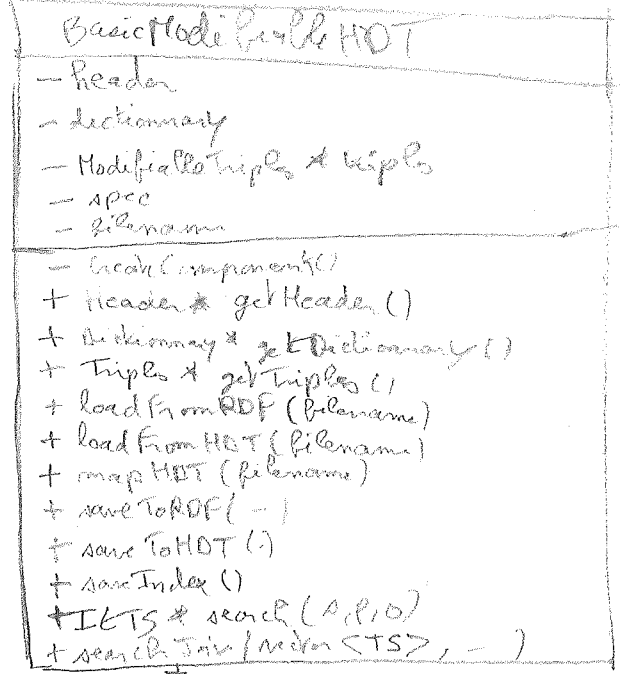 BasicModifiableHDT
- header
- dictionnary
- ModifiableTriples * triples
- spec
- filename
- createComponents()
+ Header * getHeader ()
+ Dictionnary * getDictionnary ()
+ Triples * getTriples ()
+ loadFromRDF (filename)
+ loadFromHDT (filename)
+ mapHDT (filename)
+ saveToRDF( - )
+ saveToHDT (.)
+ saveIndex ()
+ ItTS * search (s,p,o)
+ searchJoin (vector <TS>, - )